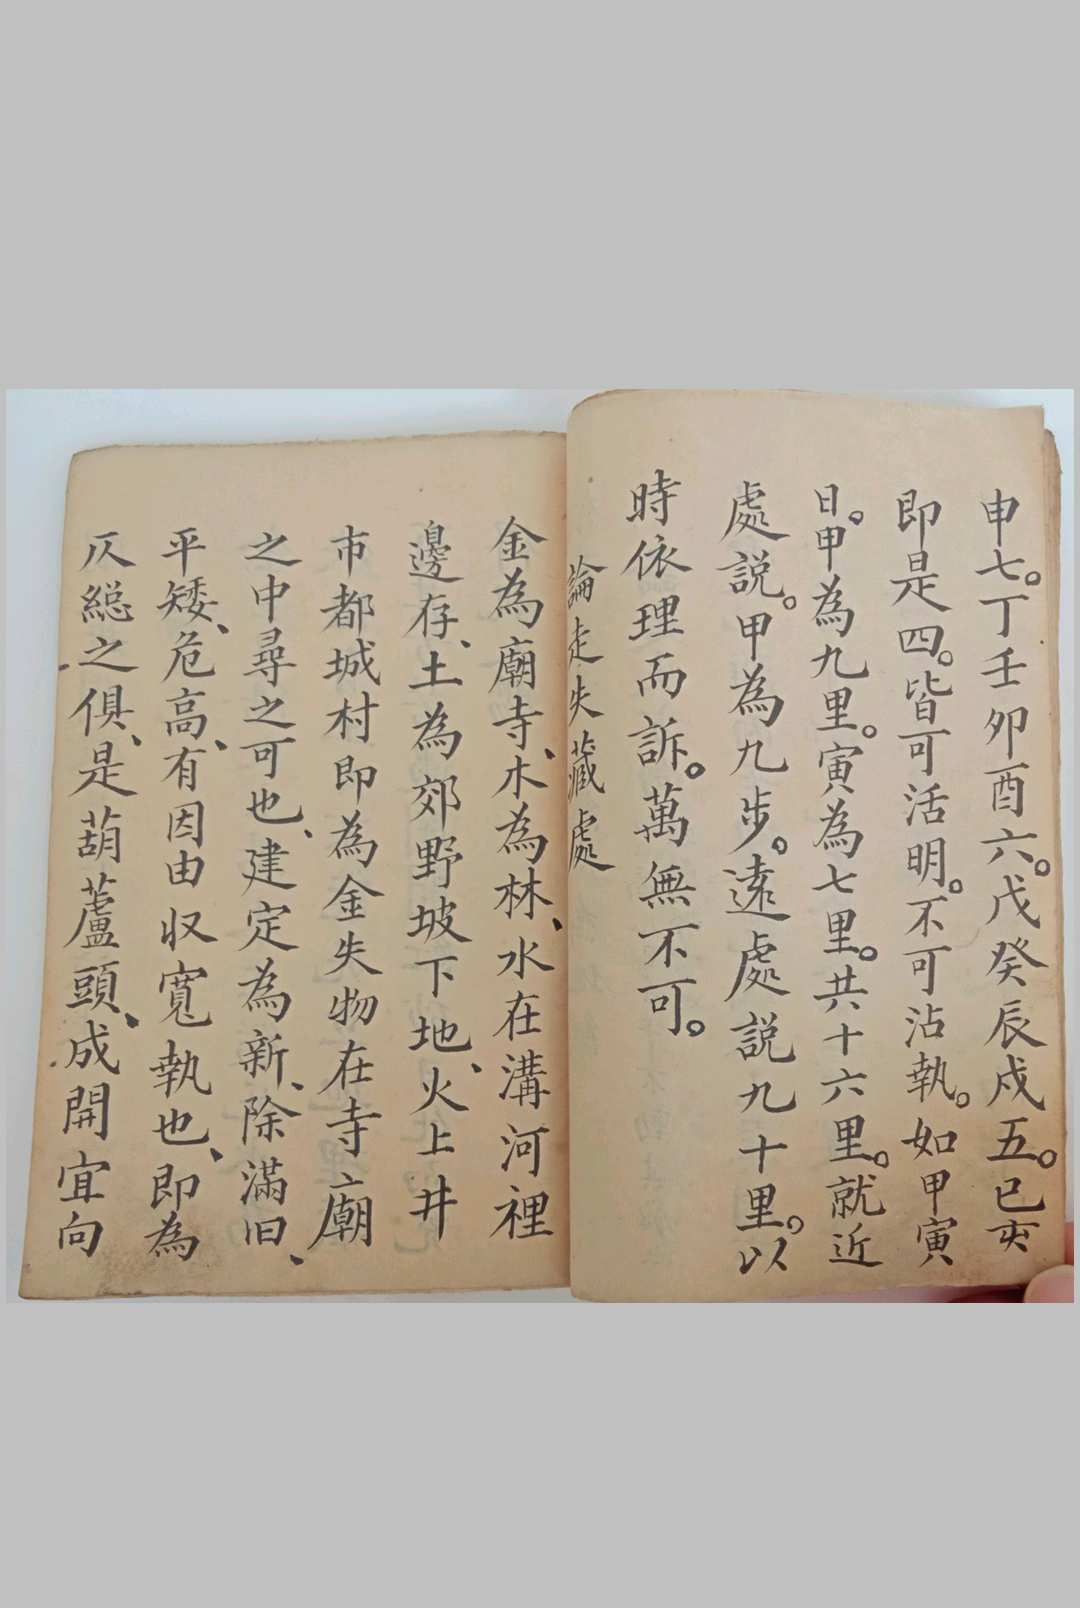 申七。丁壬卯酉六。戊癸辰戌五。巳亥
即是四。皆可活明。不可沾執。如甲寅
日。甲為九里。寅為七里。共十六里。就近
處説。甲為九步。遠處説九十里。以
時依理而訴。萬無不可。
論走失藏處
金為廟寺、木為林、水在溝河裡
邊存、土為郊野坡下地、火上井
市都城村即為金失物在寺廟
之中尋之可也、建定為新、除滿旧、
平矮、危高、有因由収寬執也、即為
仄總之俱、是葫蘆頭、成開宜向